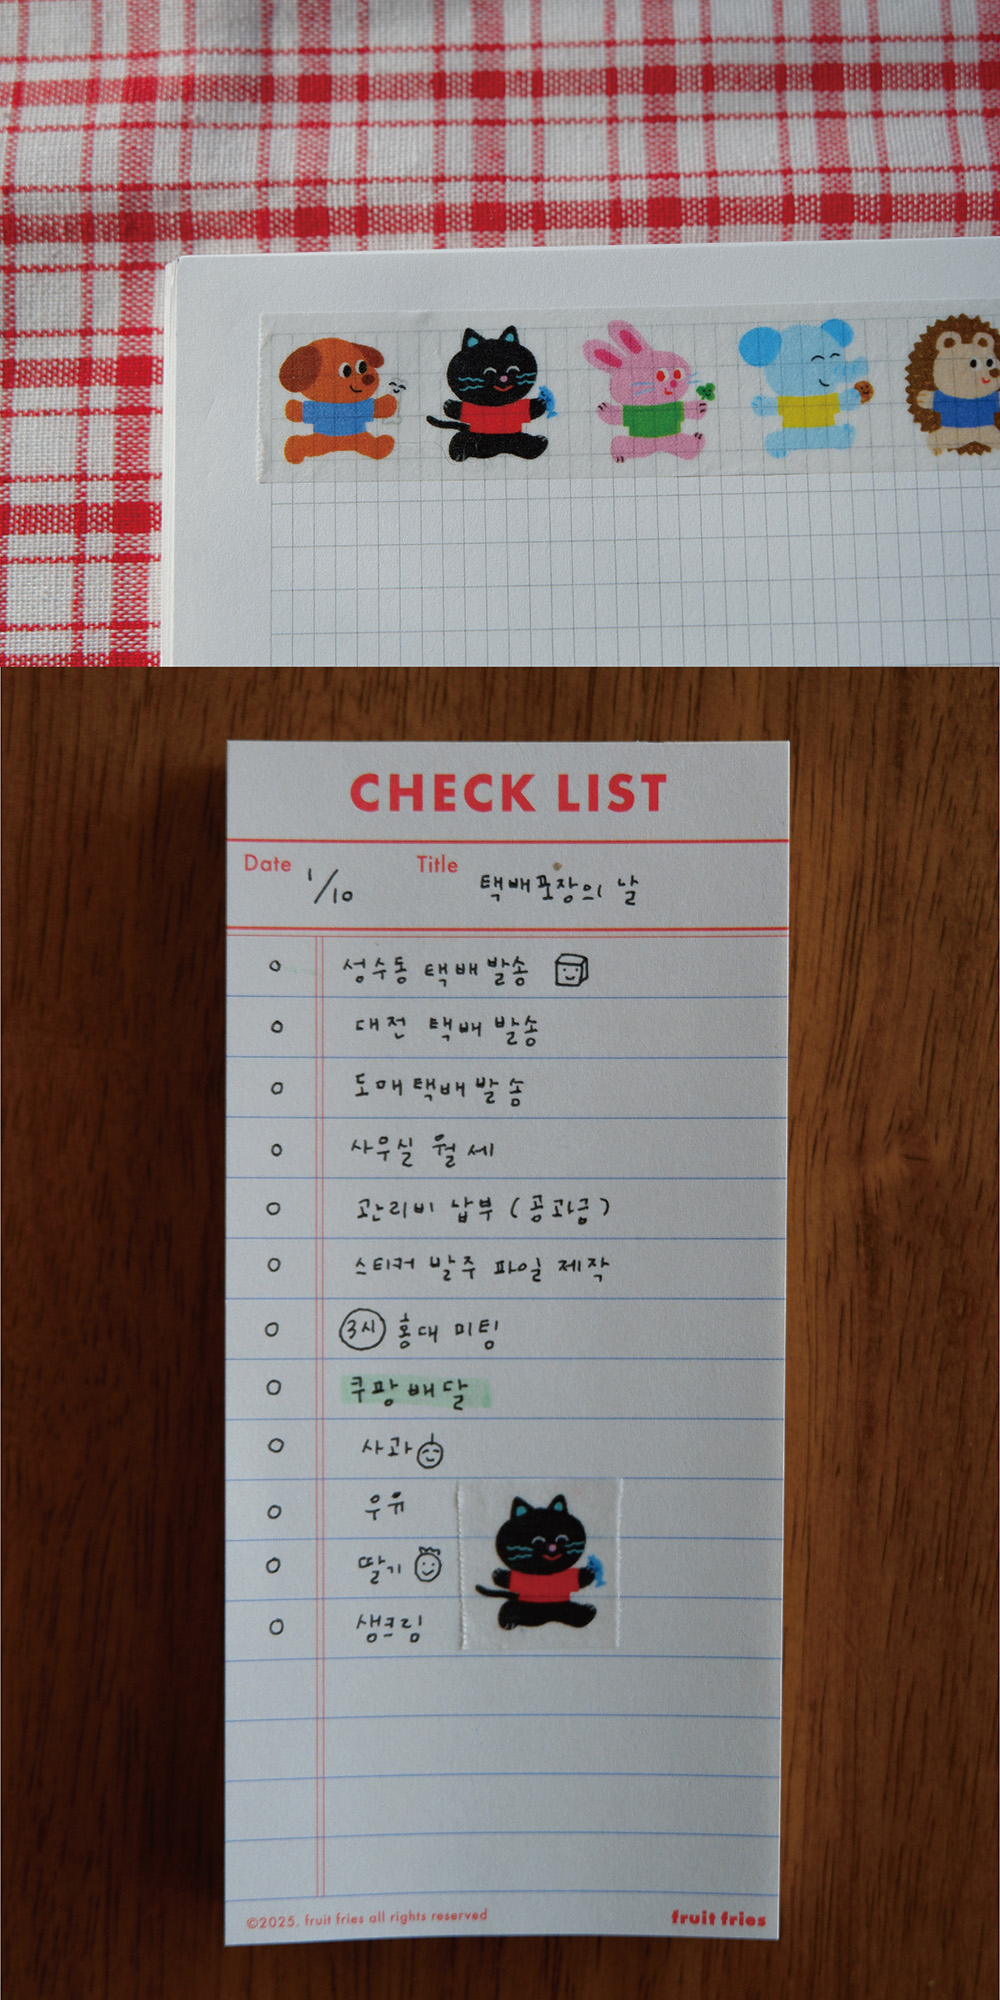 CHECK LIST
Date 1/10 Title 택배포장의 날
성수동 택배 발송
대전 택배 발송
도매택배발송
사우실 월세
관리비 납부 (공과금)
스티커 발주 파일 제작
3시 홍대 미팅
쿠팡배달
사과
우유
딸기
생크림
©2025. fruit fries all rights reserved fruit fries